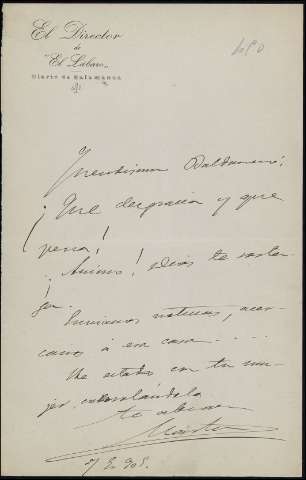 El Director
de
"El Lábaro"
Diario de Salamanca
Queridísimo Baldomero:
¡Qué desgracia y qué
pena!
¡Animo! ¡Dios te sosten-
ga.
Envíanos noticias, acer-
canos á esa casa....
He estado con tu mu-
jer, consolándola
te abraza